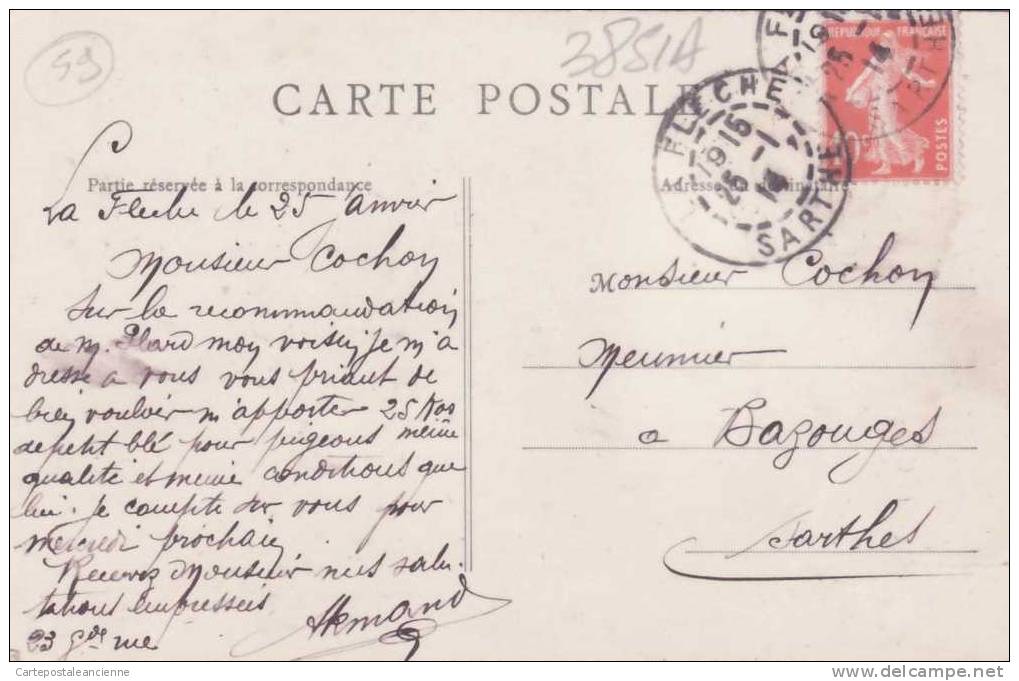 59
3851A
CARTE POSTALE
RÉPUBLIQUE FRANÇAISE
POSTES
LA FLECHE
19 15
25 - 1
14
SARTHE
Partie réservée à la correspondance
La Fleche le 25 Janvier
Monsieur Cochon
Sur la recommandation
de M. Plard mon voisin Je m'a
dresse a vous vous priant de
bien vouloir m'apporter 25 Kos
de petit blé pour pigeons même
qualité et meme conditions que
lui. Je compte sur vous pour
mercredi prochain
Recevez Monsieur mes salu-
tations empressées
Armand
23 Gde rue
Adresse du destinataire
Monsieur Cochon
Meunier
a Bazouges
Sarthes
Cartepostaleancienne
www.delcampe.net